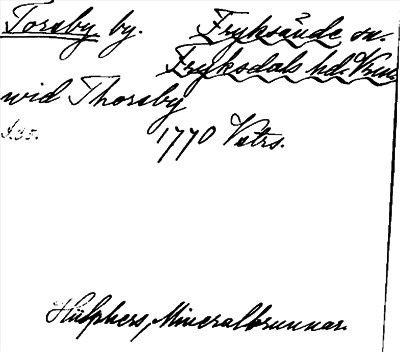 Torsby by. Fryksände sn.
Fryksdals hd. Vrml
wid Thorsby
s. 35. 1770 Vstrs.
Hülphers, Mineralbrunnar.